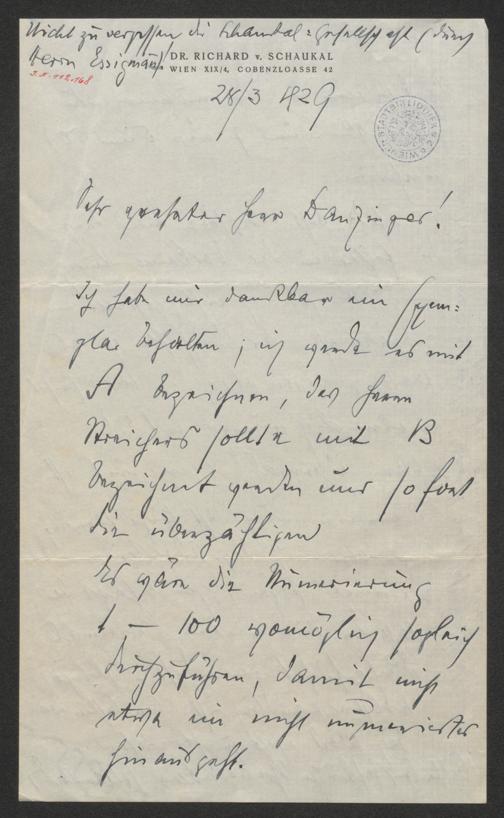 Nicht zu vergessen die Schaukal-Gesellschaft (durch
Herrn Essigmann)
DR. RICHARD v. SCHAUKAL
WIEN XIX/4, COBENZLGASSE 42
28/3 1929
Sehr geehrter Herr Danzinger!
Ich habe mir dankbar ein Exem-
plar behalten; ich werde es mit
A bezeichnen, das Herrn
Streichers sollte mit B
bezeichnet werden und sofort
die überzähligen
Es wäre die Numerierung
1 — 100 womöglich sogleich
durchzuführen, damit nicht
etwa ein nicht numeriertes
hinausgeht.